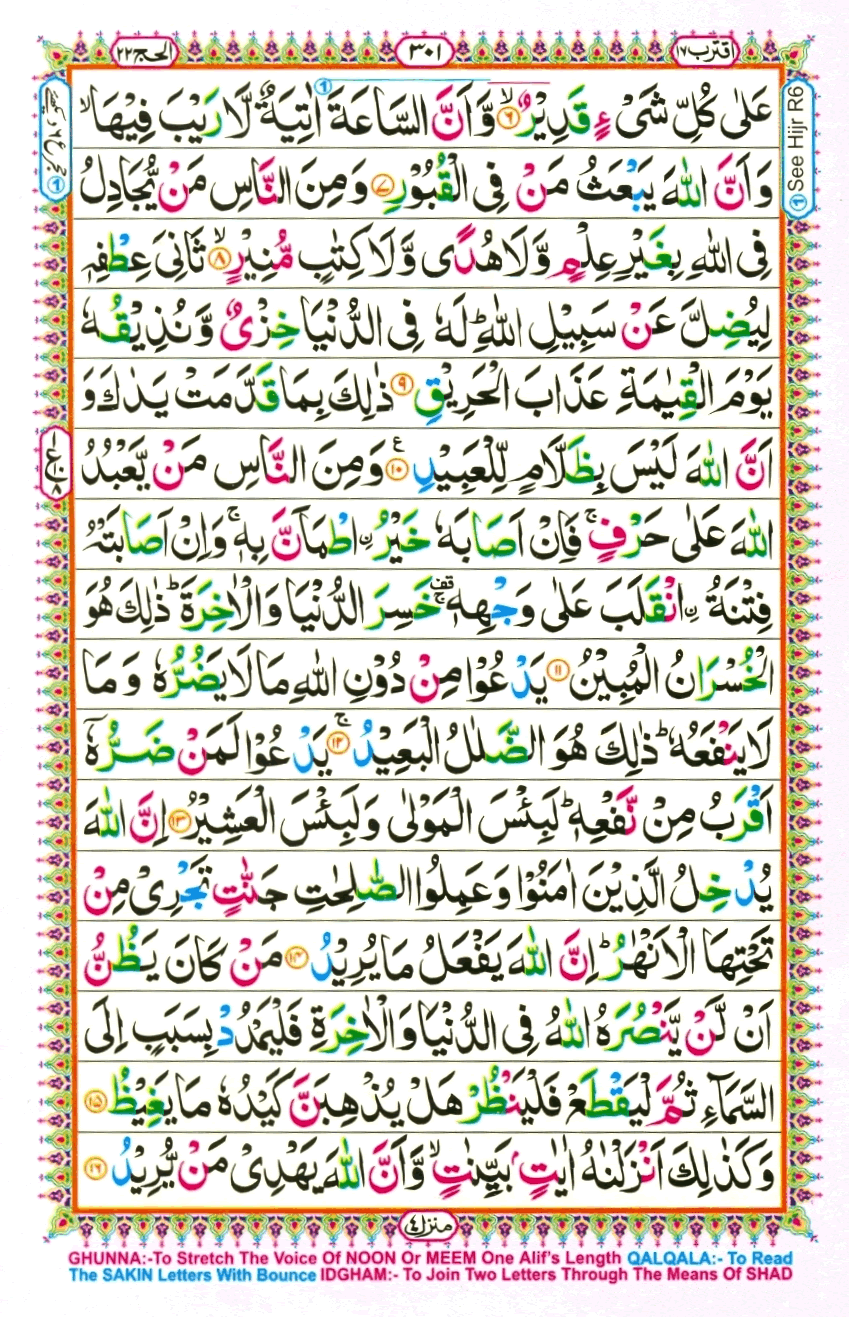 اقترب ١٧
٣٠١
الحج ٢٢
عَلٰی كُلِّ شَیْءٍ قَدِیْرٌ ۙ‏﴿۶﴾ وَّاَنَّ السَّاعَةَ اٰتِیَةٌ لَّا رَیْبَ فِیْهَا ۙ
وَاَنَّ اللّٰهَ یَبْعَثُ مَنْ فِی الْقُبُوْرِ ﴿۷﴾ وَمِنَ النَّاسِ مَنْ یُّجَادِلُ
فِی اللّٰهِ بِغَیْرِ عِلْمٍ وَّلَا هُدًی وَّلَا كِتٰبٍ مُّنِیْرٍ ۙ﴿۸﴾ ثَانِیَ عِطْفِهٖ
لِیُضِلَّ عَنْ سَبِیْلِ اللّٰهِ ؕ لَهٗ فِی الدُّنْیَا خِزْیٌ وَّنُذِیْقُهٗ
یَوْمَ الْقِیٰمَةِ عَذَابَ الْحَرِیْقِ ﴿۹﴾ ذٰلِكَ بِمَا قَدَّمَتْ یَدٰكَ وَ
اَنَّ اللّٰهَ لَیْسَ بِظَلَّامٍ لِّلْعَبِیْدِ ﴿۱۰﴾ۧ وَمِنَ النَّاسِ مَنْ یَّعْبُدُ
اللّٰهَ عَلٰی حَرْفٍ ۚ فَاِنْ اَصَابَهٗ خَیْرُ ۨاطْمَاَنَّ بِهٖ ۚ وَاِنْ اَصَابَتْهُ
فِتْنَةُ ۨانْقَلَبَ عَلٰی وَجْهِهٖ ۚ۫ خَسِرَ الدُّنْیَا وَالْاٰخِرَةَ ؕ ذٰلِكَ هُوَ
الْخُسْرَانُ الْمُبِیْنُ ﴿۱۱﴾ یَدْعُوْا مِنْ دُوْنِ اللّٰهِ مَا لَا یَضُرُّهٗ وَمَا
لَا یَنْفَعُهٗ ؕ ذٰلِكَ هُوَ الضَّلٰلُ الْبَعِیْدُ ۚ﴿۱۲﴾ یَدْعُوْا لَمَنْ ضَرُّهٗۤ
اَقْرَبُ مِنْ نَّفْعِهٖ ؕ لَبِئْسَ الْمَوْلٰی وَلَبِئْسَ الْعَشِیْرُ ﴿۱۳﴾ اِنَّ اللّٰهَ
یُدْخِلُ الَّذِیْنَ اٰمَنُوْا وَعَمِلُوا الصّٰلِحٰتِ جَنّٰتٍ تَجْرِیْ مِنْ
تَحْتِهَا الْاَنْهٰرُ ؕ اِنَّ اللّٰهَ یَفْعَلُ مَا یُرِیْدُ ﴿۱۴﴾ مَنْ كَانَ یَظُنُّ
اَنْ لَّنْ یَّنْصُرَهُ اللّٰهُ فِی الدُّنْیَا وَالْاٰخِرَةِ فَلْیَمْدُدْ بِسَبَبٍ اِلَی
السَّمَآءِ ثُمَّ لْیَقْطَعْ فَلْیَنْظُرْ هَلْ یُذْهِبَنَّ كَیْدُهٗ مَا یَغِیْظُ ﴿۱۵﴾
وَكَذٰلِكَ اَنْزَلْنٰهُ اٰیٰتٍۭ بَیِّنٰتٍ ۙ وَّاَنَّ اللّٰهَ یَهْدِیْ مَنْ یُّرِیْدُ ﴿۱۶﴾
① See Hijr R6
منزل ٤
GHUNNA:-To Stretch The Voice Of NOON Or MEEM One Alif's Length QALQALA:- To Read
The SAKIN Letters With Bounce IDGHAM:- To Join Two Letters Through The Means Of SHAD